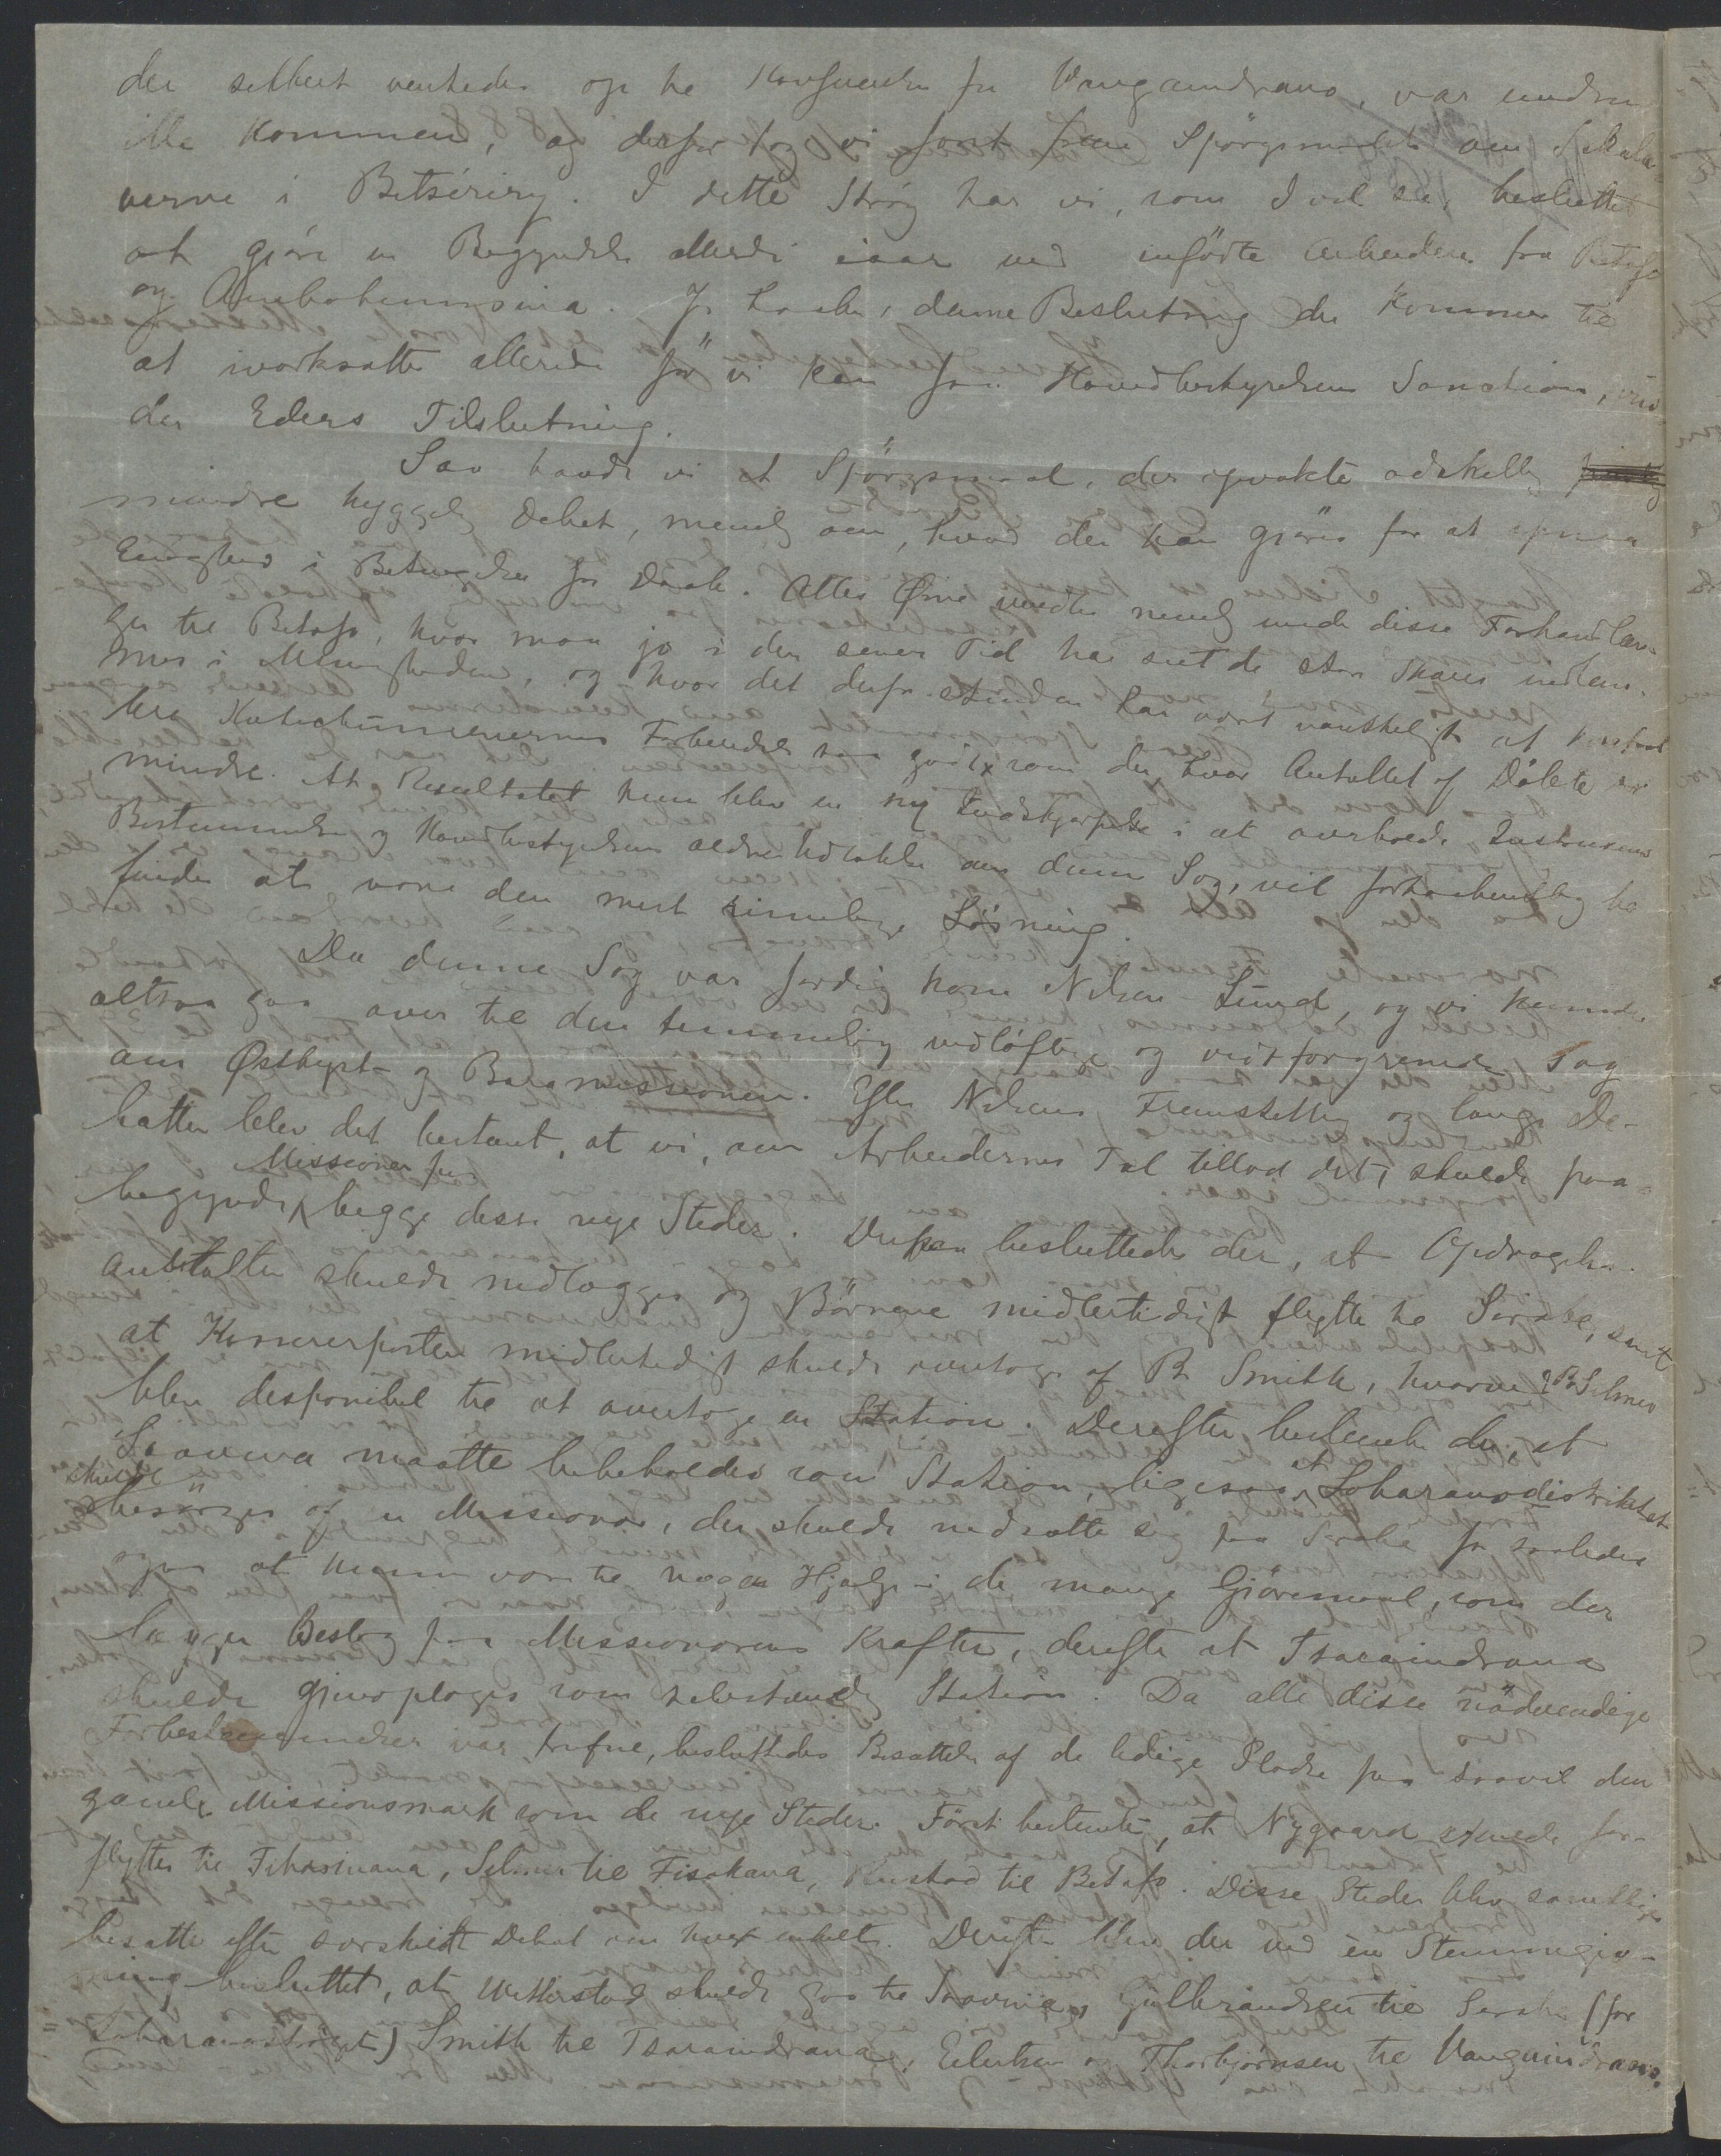 der sikkert ventedes op til Konferensen fra Vangaindrano, var endnu
ikke kommen, og derfor tog vi først frem Spörgsmaalet om Sakala-
verne i Betsiriry. I dette Strög har vi, som I vil se, besluttet
at gjöre en Begyndelse allerede iaar med infödte Arbeidere fra Betafo
og Ambohimasina. Jeg haaber, denne Beslutning der kommer til
at iverksættes allerede för vi kan faa Hovedbestyrelsens Sanction, vin-
der Eders Tilslutning.
Saa havde vi et Spörgsmaal, der opvakte adskillig
mindre hyggelig Debat, nemlig om, hvad der kan gjöres for at opnaa
Enighed i Betingelser for Daab. Alles Øine vendtes nemlig under disse Forhandlin-
ger til Betafo, hvor man jo i den senere Tid har seet de store Skarer indlem-
mes i Menigheden, og hvor det derfor stundom har vært vanskeligt at
Katechumenernes Forberedelse saa godt som der, hvor Antallet af Döbte er
mindre. At Resultatet kun blev en ny Indskjærpelse i at overholde Instruxens
Bestemmelser og Hovedbestyrelsens ældre Udtalelse om denne Sag, vil forhaabentlig
findes at være den mest rimelige Lösning.
Da denne Sag var færdig kom Nilsen-Lund, og vi kunde
altsaa gaa over til den temmelig vidlöftige og vidtforgrenede Sag
om Østkyst- og Baramissionen. Efter Nilsens Fremstilling og lange De-
batter blev det bestemt, at vi, om Arbeidernes Tal tillod det, skulde paa-
begynde Missionen paa begge disse nye Steder. Derpaa besluttedes der, at Opdragelses-
anstalten skulde nedlægges og Börnene midlertidigt flytte til Sirabe, samt
at Kasererposten midlertidigt skulde overtages af Br. Smith, hvorved Br Selmer
blev disponibel til at overtage en Station. Derefter bestemtes der, at
Soavina maatte bibeholdes som Station, ligesaa at Loharanodistriktet
skulde besörges af en Missionær, der skulde nedsætte sig paa Sirabe for saaledes
ogsaa at kunne være til nogen Hjælp i de mange Gjöremaal, som der
lægger Beslag paa Missionærens Kræfter, derefter at Tsaraindrana
skulde gjenoptages som selvstændig Station. Da alle disse nödvendige
Forbestemmelser var trufne, besluttedes Besættelse af de ledige Pladse paa saavel den
gamle Missionsmark som de nye Steder. Först bestemtes, at Nygaard skulde for-
flyttes til Fihasinana, Selmer til Fisakana, Rustad til Betafo. Disse Steder blev samtlige
besatte efter særskildt Debat om hvert enkelt. Derefter blev der ved én Stemmegiv-
ning besluttet, at Wetterstad skulde gaa til Soavina, Gulbrandsen til Sirabe (for
Loharanoströget) Smith til Tsaraindrana, Eilertsen og Thorbjörnsen til Vangaindrano.